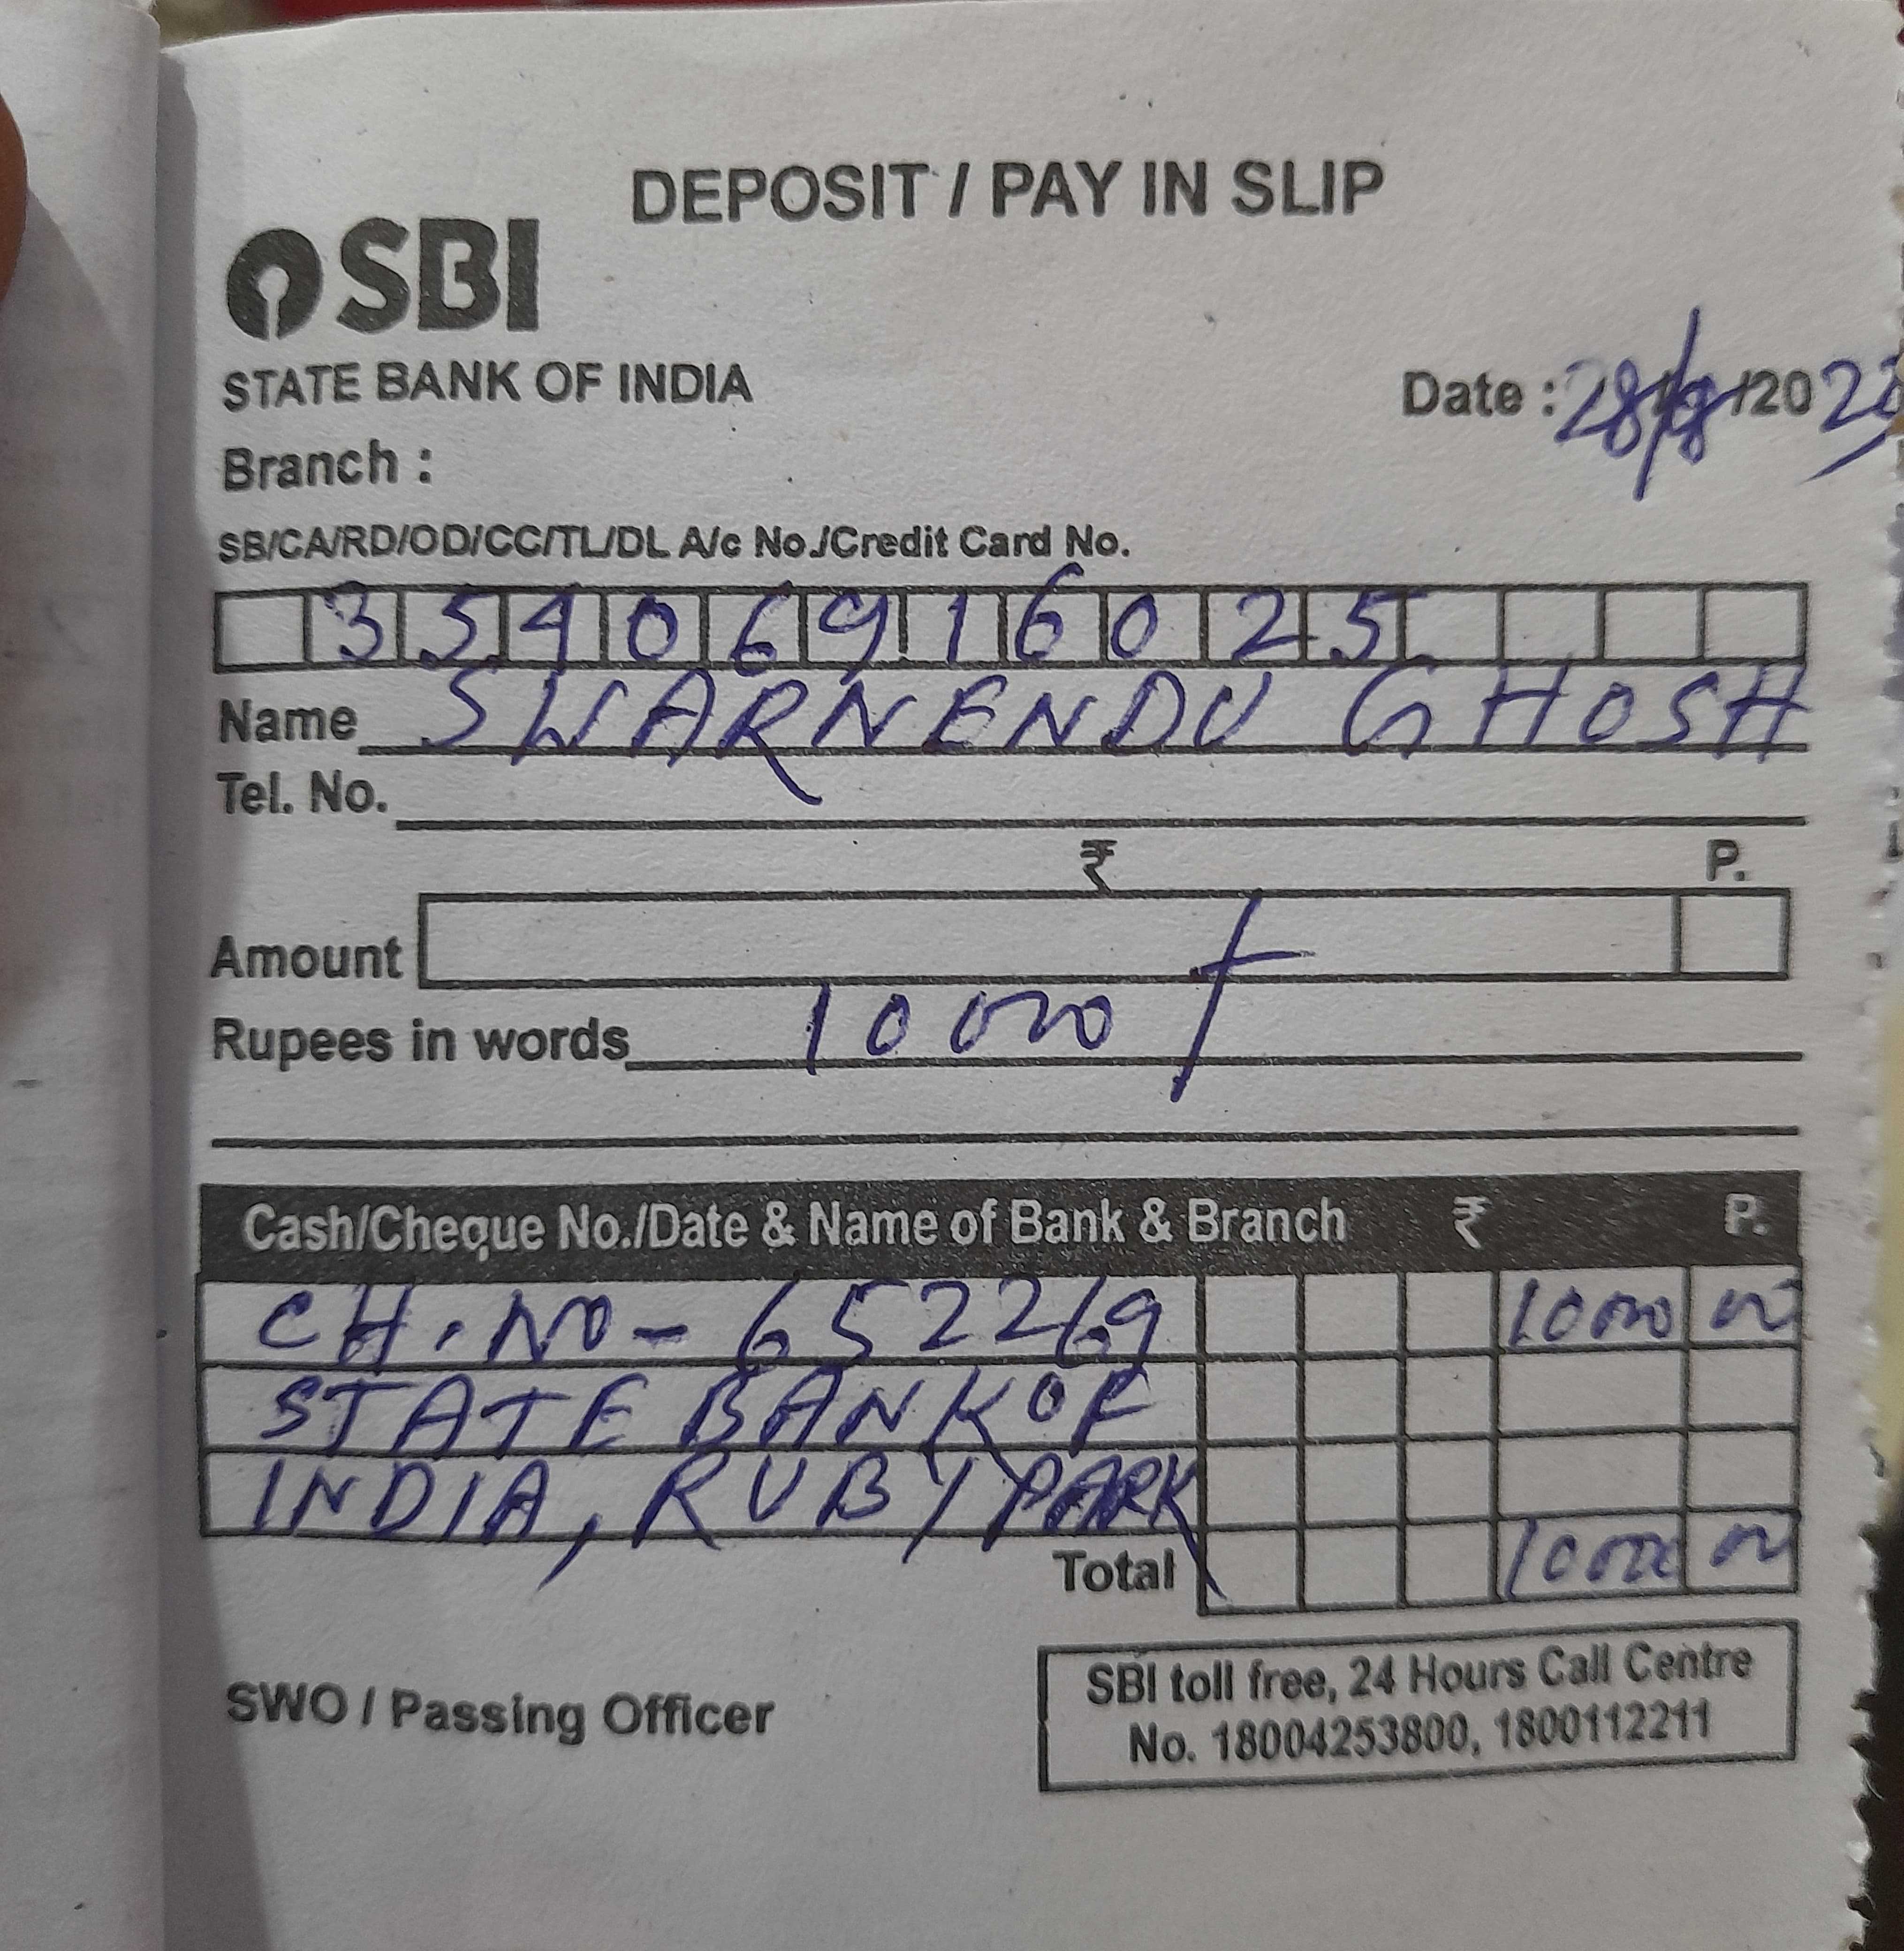 DEPOSIT / PAY IN SLIP
SBI
STATE BANK OF INDIA
Date : 28/8/2023
Branch :
SB/CA/RD/OD/CC/TL/DL A/c No./Credit Card No.
35406916025
Name SWARNENDU GHOSH
Tel. No.
₹ P.
Amount
Rupees in words 10000/-
Cash/Cheque No./Date & Name of Bank & Branch ₹ P.
CH. NO - 652269 10000 00
STATE BANK OF
INDIA, RUBY PARK
Total 10000 00
SWO / Passing Officer
SBI toll free, 24 Hours Call Centre
No. 18004253800, 1800112211